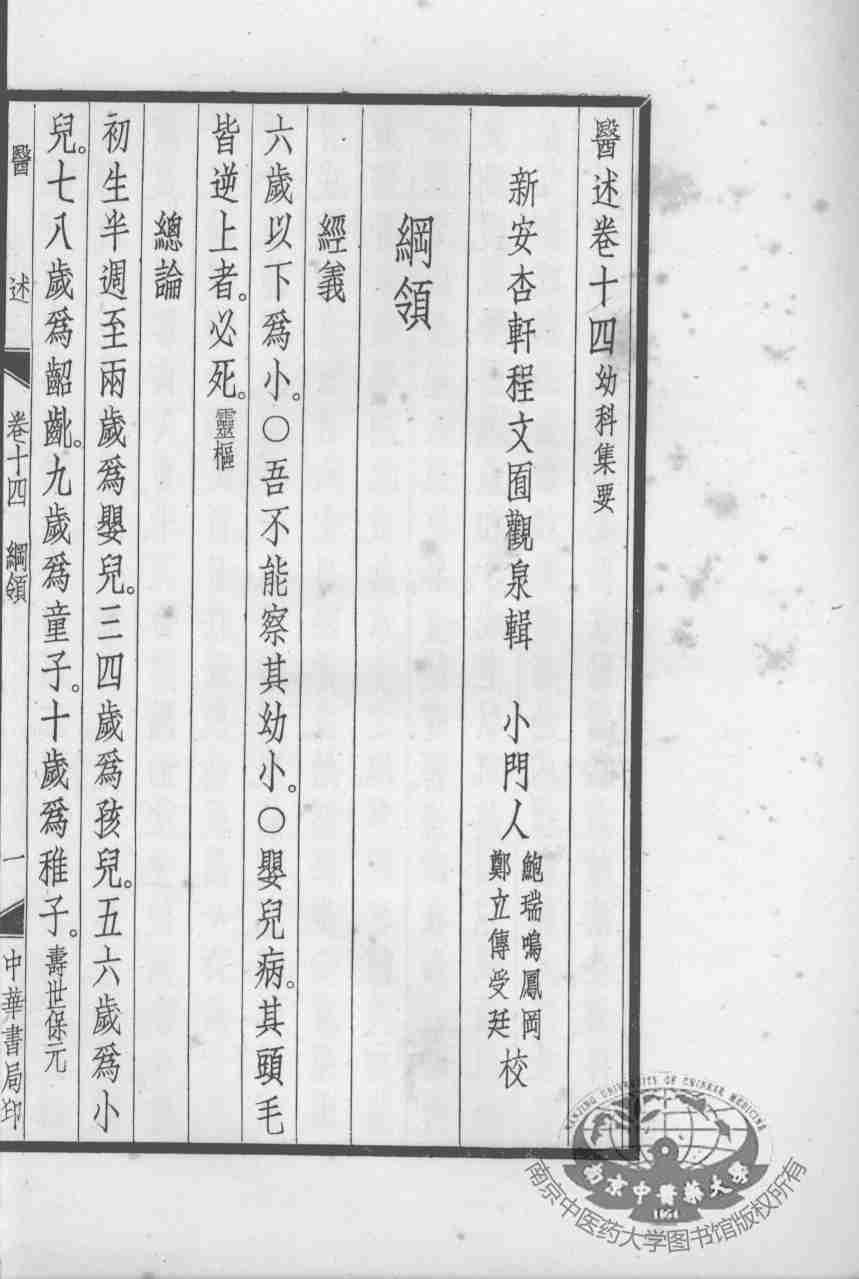 醫述卷十四幼科集要
新安杏軒程文囿觀泉輯 小門人 鮑瑞鳴鳳岡 鄭立傳受廷 校
綱領
經義
六歲以下爲小。○吾不能察其幼小。○嬰兒病。其頭毛
皆逆上者。必死。靈樞
總論
初生半週至兩歲爲嬰兒。三四歲爲孩兒。五六歲爲小
兒。七八歲爲齠齔。九歲爲童子。十歲爲稚子。壽世保元
醫述 卷十四 綱領 一 中華書局印
NANJING UNIVERSITY OF CHINESE MEDICINE
南京中醫藥大學
1954
南京中医药大学图书馆版权所有